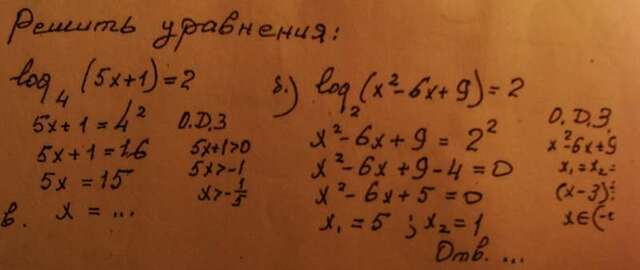 Решить уравнения:
log₄ (5x+1) = 2
5x+1 = 4²
5x+1 = 16
5x = 15
x = ...
О.Д.З
5x+1>0
5x>-1
x>-1/5
в.
б.) log₂ (x²-6x+9) = 2
x²-6x+9 = 2²
x²-6x+9-4 = 0
x²-6x+5 = 0
x₁ = 5 ; x₂ = 1
Отв. ...
О.Д.З.
x²-6x+9
x₁=x₂=
(x-3)²
x∈(-